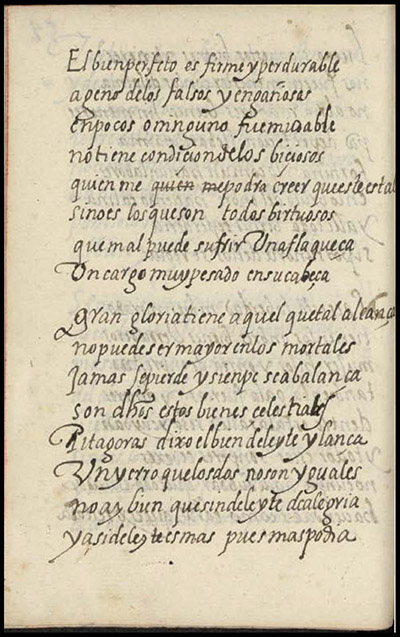 El bien perfeto es firme y perdurable
ageno de los falsos y engañosos
en pocos o ninguno fue mudable
no tiene condicion de los biçiosos
quien me quien me podra creer que este es tal
sino es los que son todos birtuosos
que mal puede sufrir Una flaqueça
Un cargo muy pesado en su cabeça
Gran gloria tiene aquel que tal alcança
no puede ser mayor en los mortales
Jamas se pierde y sienpe se abalança
son dhos estos bienes celestiales
Pitagoras dixo el bien deleyte y lança
Un yerro que los dos no son yguales
no ay bien que sin deleyte de alegria
y asi deleyte es mas pues mas podia